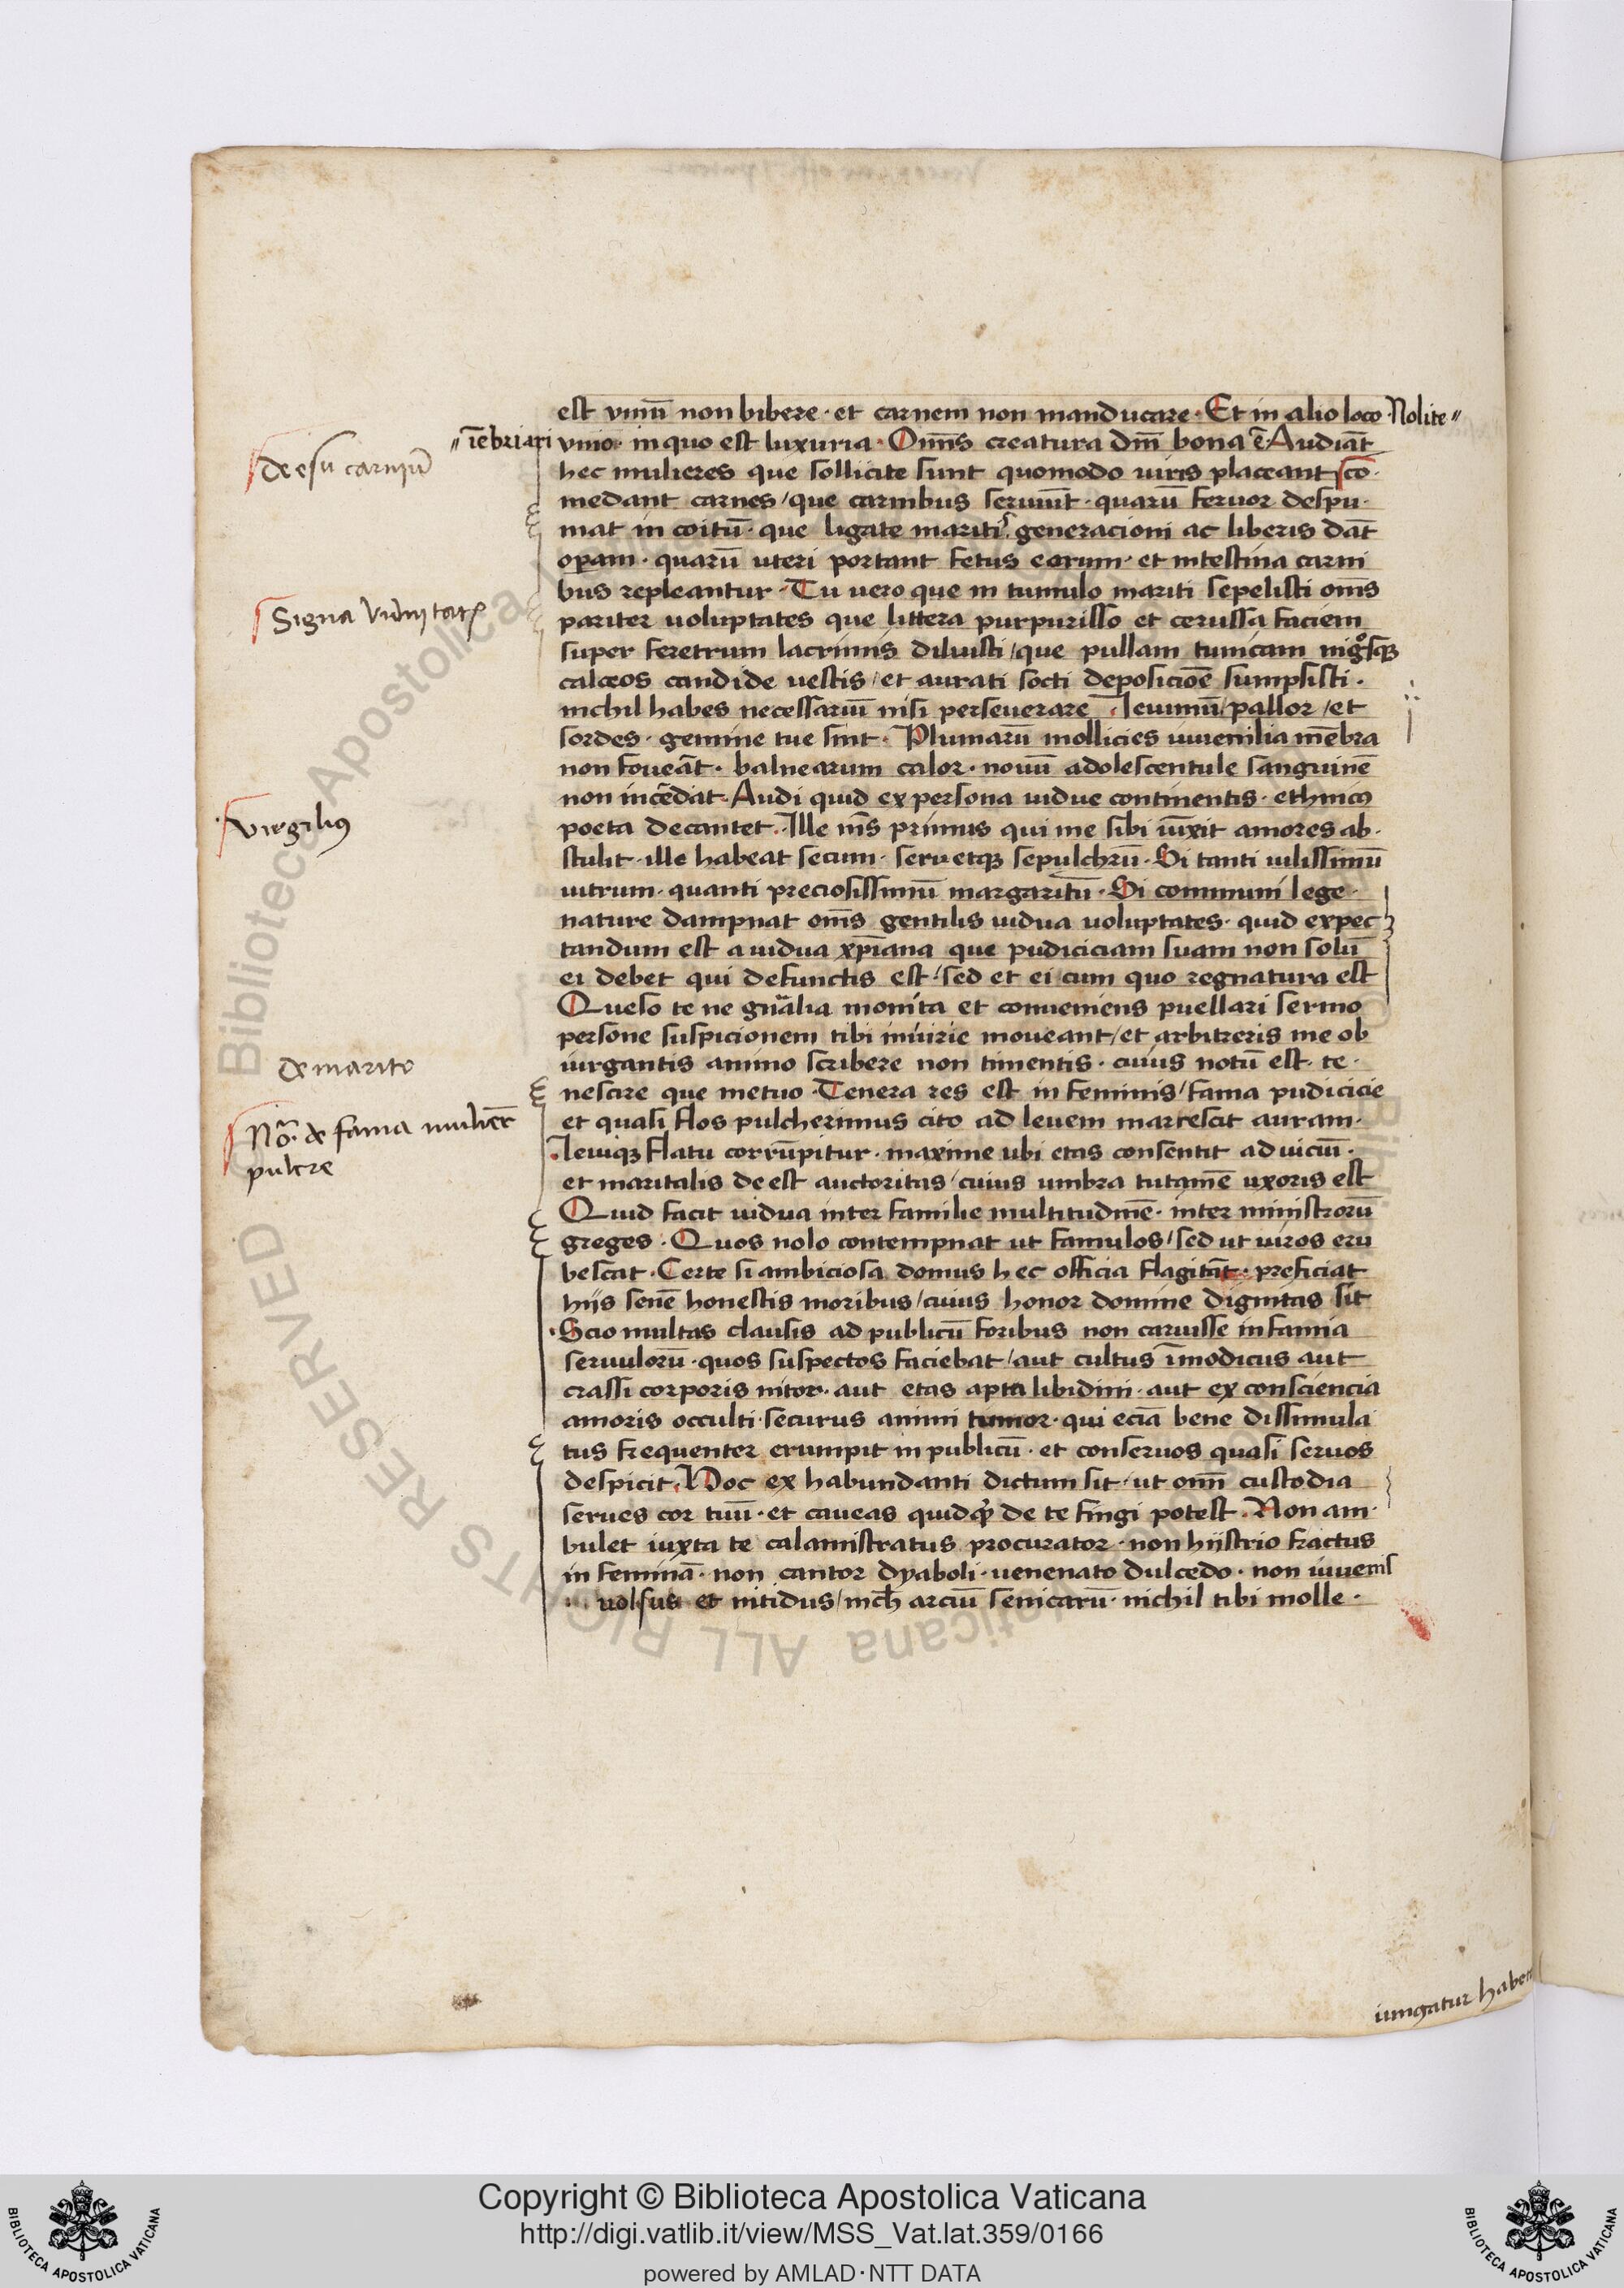 est vinū non bibere · et carnem non manducare · Et in alio loco · Nolite〃
〃īebriari vino · in quo est luxuria · Om̄s creatura dm̄ bona ē · Audiāt
hec mulieres que sollicite sunt quomodo uiris placeant co·
medant carnes / que carnibus seruiūt · quarū feruor despu·
mat in coitū · que ligate mariti generacioni ac liberis dāt
operam · quarū uteri portant fetus eorum · et intestina carni
bus repleantur · Tu vero que in tumulo mariti sepelisti om̄s
pariter uoluptates que littera purpurisso et cerussa faciem
super feretrum lacrimis diluisti / que pullam tunicam nigosq3
calceos candide uestis / et aurati socti deposicioē sumpsisti ·
nichil habes necessariū nisi perseuerare · Ieiuniū / pallor / et
sordes · gemme tue sint · Plumarū mollicies iuuenilia mēbra
non foueāt · balnearum calor · nouū adolescentule sanguinē
non incēdat · Audi quid ex persona uidue continentis · ethnicꝰ
poeta decantet · Ille m̄s primus qui me sibi iūxit amores ab·
stulit · ille habeat secum · seruetq3 sepulchrū · Si tanti uilissimū
uitrum · quanti preciosissimū margaritū · Si communi lege ·
nature dampnat om̄s gentilis uidua uoluptates · quid expec
tandum est a uidua xp̄iana que pudiciciam suam non solū
ei debet qui defunctis est · sed et ei cum quo regnatura est
Queso te ne gn̄alia monita et conueniens puellari sermo
persone suspicionem tibi iniurie moueant / et arbitreris me ob
iurgantis animo scribere non timentis · cuius notū est · te ·
nescire que metuo · Tenera res est in feminis / fama pudicicie
et quasi flos pulcherimus cito ad leuem martescit auram ·
leuiq3 flatu corrūpitur · maxime ubi etas consentit ad uiciū ·
et maritalis deest auctoritas / cuius umbra tutamē uxoris est
Quid facit uidua inter familie multitudinē · inter ministrorū
greges · Quos nolo contempnat ut famulos / sed ut uiros eru
bescat · Certe si ambiciosa domus hec officia flagitāt · preficiat
hijs senē honestis moribus / cuius honor domine dignitas sit
· Scio multas clausis ad publicū foribus non caruisse infamia
seruulorū · quos suspectos faciebat / aut cultus īmodicus aut
crassi corporis nitor · aut etas apta libidini · aut ex consciencia
amoris occulti · securus animi tumor · qui eciā bene dissimula
tus frequenter erumpit in publicū · et conseruos quasi seruos
despicit · Hoc ex habundanti dictum sit · ut om̄i custodia
serues cor tuū · et caueas quidqͥd de te fingi potest · Non am·
bulet iuxta te calamistratus procurator · non hijstrio fractus
in feminā · non cantor dyaboli · uenenato dulcedo · non iuuenis
uolsus et nitidus / nich̄ arciū senicarū · nichil tibi molle ·
de esu carniū
Signa viduitatꝭ
virgilius
de marito
No. de fama mulier̄
pulcre
iungatur haben
Biblioteca Apostolica Vaticana ALL RIGHTS RESERVED
Copyright © Biblioteca Apostolica Vaticana
http://digi.vatlib.it/view/MSS_Vat.lat.359/0166
powered by AMLAD·NTT DATA
BIBLIOTECA APOSTOLICA VATICANA
BIBLIOTECA APOSTOLICA VATICANA